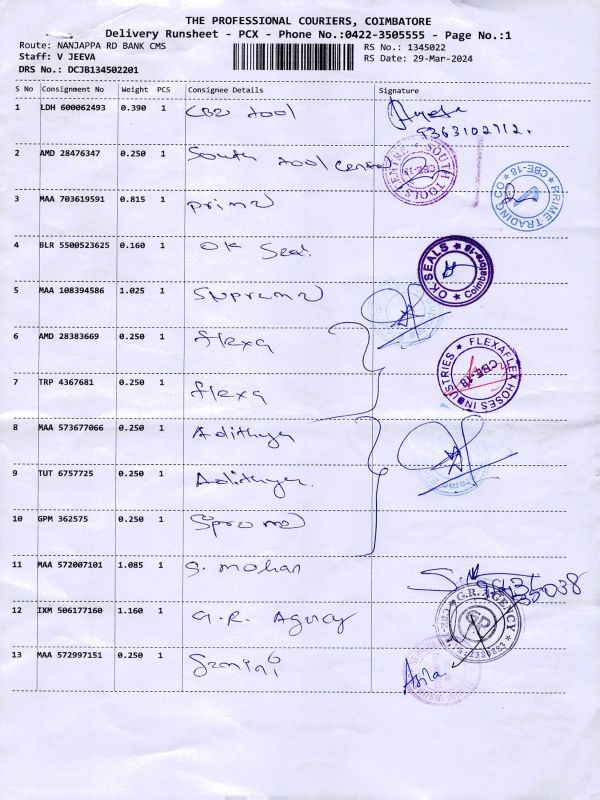 THE PROFESSIONAL COURIERS, COIMBATORE
Delivery Runsheet - PCX - Phone No.:0422-3505555 - Page No.:1
Route: NANJAPPA RD BANK CMS
RS No.: 1345022
Staff: V JEEVA
RS Date: 29-Mar-2024
DRS No.: DCJB134502201
S No Consignment No Weight PCS Consignee Details Signature
1 LDH 600062493 0.390 1 CBE tool
9363102712.
2 AMD 28476347 0.250 1 South tool central
SOUTH TOOLS CENTRE CBE-18
3 MAA 703619591 0.815 1 prime
PRIME TRADING CO CBE-18
4 BLR 5500523625 0.160 1 OK Seal.
OK SEALS Coimbatore-18
5 MAA 108394586 1.025 1 Supreme
6 AMD 28383669 0.250 1 flexa
FLEXAFLEX HOSES INDUSTRIES CBE-18
7 TRP 4367681 0.250 1 flexa
8 MAA 573677066 0.250 1 Adithya
9 TUT 6757725 0.250 1 Adithya
10 GPM 362575 0.250 1
11 MAA 572007101 1.085 1 S. mohan
12 IXM 506177160 1.160 1 G.R. Agency
G.R. AGENCY
13 MAA 572997151 0.250 1